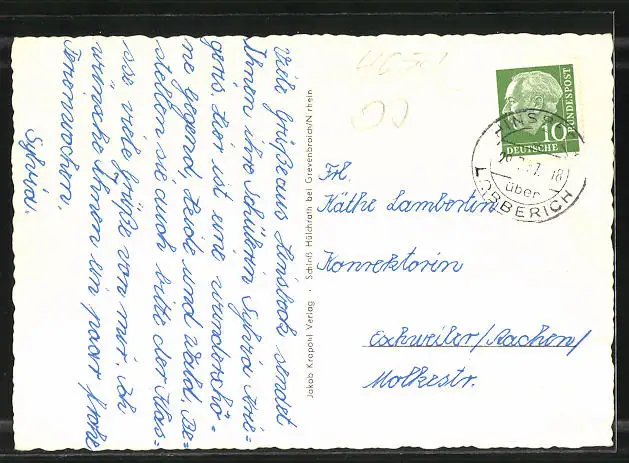 Viele Grüße aus Hinsbeck sendet
Ihnen ihre Schülerin Sylvia
gens. Hier ist eine wunderschö-
ne gegend, Heide und Wald. Be-
stellen sie auch bitte der Klas-
sse viele Grüße von mir. Ich
wünsche Ihnen ein paar frohe
Ferienwochen.
Sylvia.
Jakob Krapohl Verlag · Schloß Hülchrath bei Grevenbroich/Nrhein
Frl.
Käthe Lambertin
Konrektorin
Eschweiler/Aachen/
Molkestr.
10
DEUTSCHE
BUNDESPOST
über
LOBBERICH